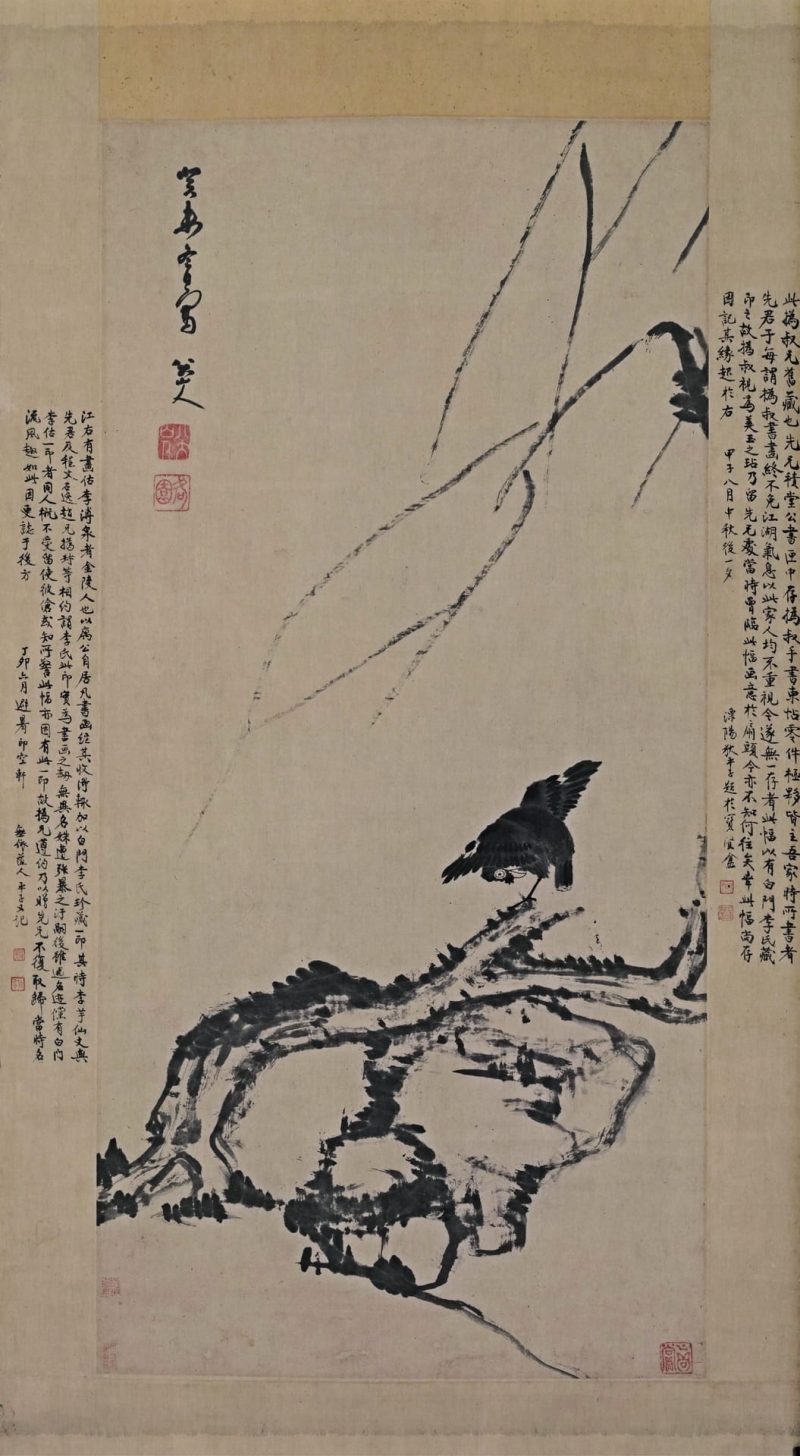 此撝叔兄舊藏也先兄積堂公書匣中存撝叔手書柬帖零件極夥皆主吾家時所書者
先君子每謂撝叔書畫終不免江湖氣息以此家人均不重視今遂無一存者此幅以有白門李氏藏
印之故撝叔視為美玉之玷乃留先兄處當時曾臨此幅画意於扇頭今亦不知何往矣幸此幅尚存
因記其緣起於右 甲子八月中秋後一夕 溧陽狄平子題於寶賢盦
寫 八大山人
江右有畫估李溥泉者金陵人也以廉公自居凡書画經其收得輒加以白門李氏珍藏一印其時李芋仙丈與
先君及程丈石逸趙兄撝叔等相約謂李氏此印實為書画之劫無異名姝遭強暴之汙嗣後雖遇名迹僅有白門
李估一印者同人概不受留使彼傖或知所警此幅亦因有此一印故撝兄遵約乃以贈先兄不復取歸當時名
流風趣如此因更誌于後方 丁卯六月避暑印空軒 平子又記